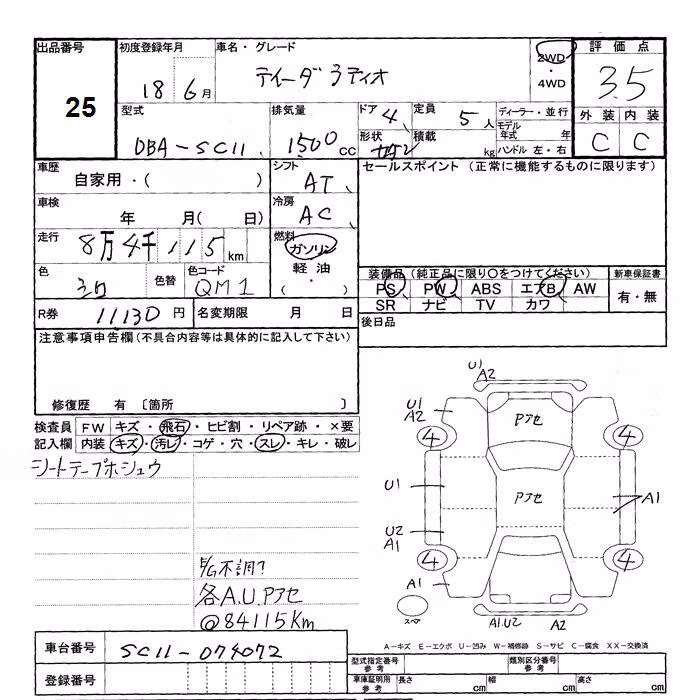 出品番号
25
初度登録年月
18 6月
車名・グレード
ティーダラティオ
2WD
・
4WD
評価点
3.5
外装 内装
C C
型式
DBA-SC11
排気量
1500cc
ドア 4
定員 5人
形状
積載 kg
ディーラー・並行
モデル年式 年
ハンドル 左・右
車歴
自家用・( )
シフト
AT
セールスポイント (正常に機能するものに限ります)
車検
年 月( 日)
冷房
AC
走行
8万4千115km
燃料
ガソリン
軽油
・( )
色
シロ
色替
色コード
QM1
装備品 (純正品に限り○をつけてください)
PS PW ABS エアB AW
SR ナビ TV カワ
新車保証書
有・無
R券 11130円
名変期限 月 日
後日品
注意事項申告欄(不具合内容等は具体的に記入して下さい)
修復歴 有 〔箇所 〕
検査員記入欄
FW キズ・飛石・ヒビ割・リペア跡・×要
内装 キズ・汚レ・コゲ・穴・スレ・キレ・破レ
シートテープホシュウ
E/G不調?
各A.U.Pアセ
@84115Km
U1
A2
U1
A2
Pアセ
4 4
U1
Pアセ
A1
U2
A1
4 4
A1
スペア
A1.U2 A2
A-キズ E-エクボ U-凹み W-補修跡 S-サビ C-腐食 XX-交換済
車台番号
SC11-074072
登録番号
型式指定番号
参考
類別区分番号
参考
車庫証明用
参考
長さ cm 幅 cm 高さ cm